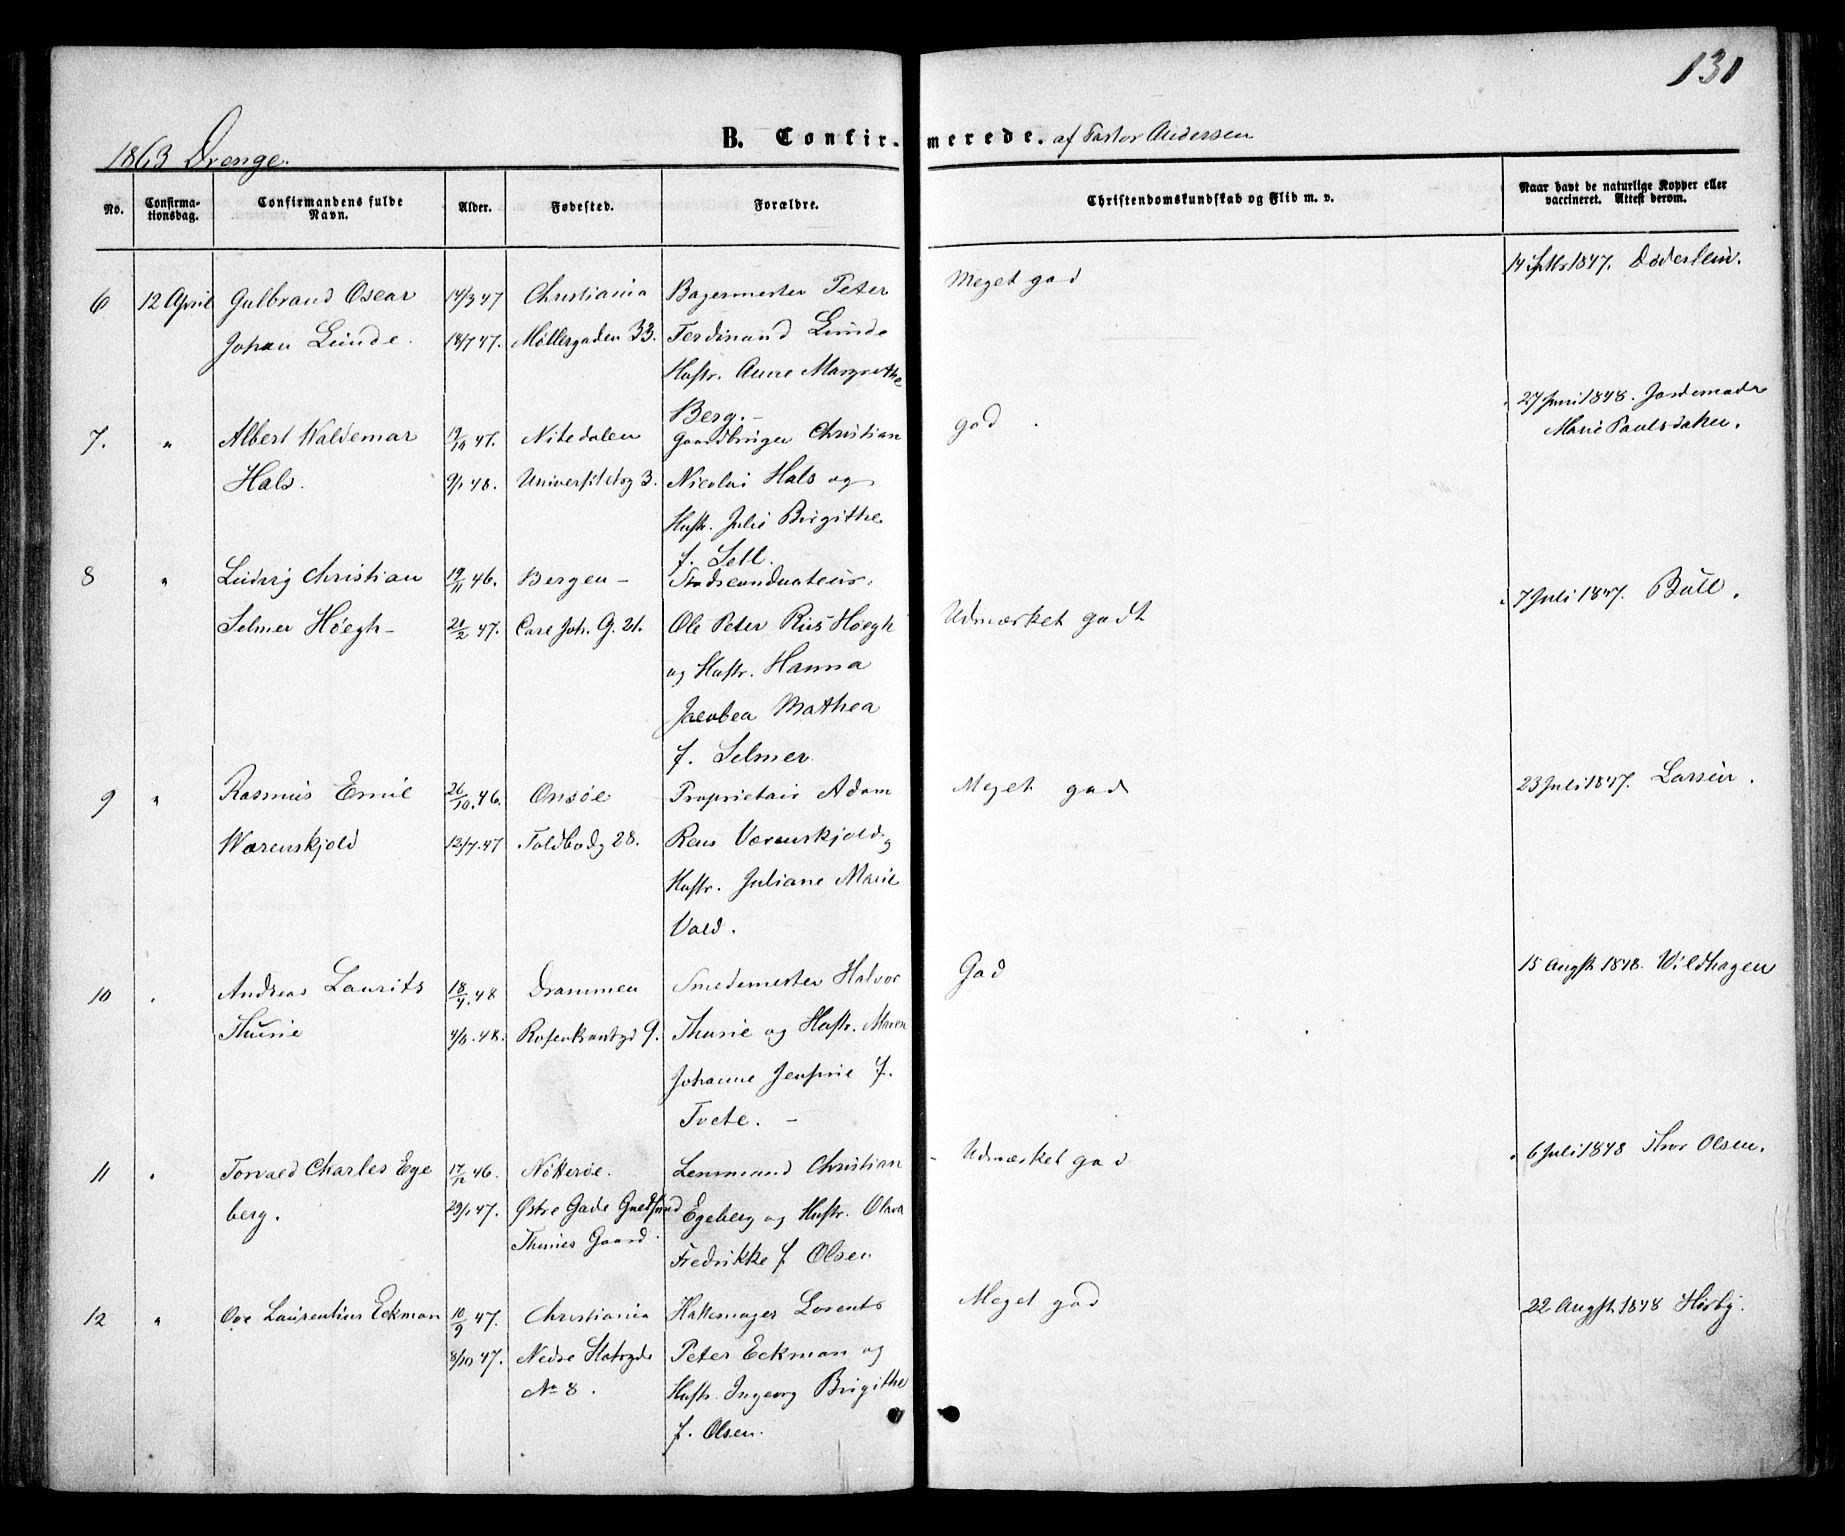 131
1863 Drenge.
B. Confirmerede. af Pastor Andersen
No.
Confirma-
tionsdag.
Confirmandens fulde
Navn.
Alder.
Fødested.
Forældre.
Christendomskundskab og Flid m. v.
Naar havt de naturlige Kopper eller
vaccineret. Attest derom.
6 12 April Gulbrand Oscar 14/3 47 Christiania Bagermester Peter Meget god 14 Septbr 1847. Døderlein.
Johan Lunde. 18/7 47. Møllergaden 33. Ferdinand Lunde
Hustr. Anne Margrethe
Berg. -
7. " Albert Waldemar 19/10 47. Nitedalen Gaardbruger Christian god 27 Juni 1848. Jordemoder
Hals. 9/1 48. Universitetsg 3. Nicolai Hals og Marie Paulsdatter.
Hustr. Julie Birgithe
f. Sell.
8 " Ludvig Christian 19/11 46. Bergen - Stadsconducteur. 7 Juli 1847. Bull.
Selmer Høegh - 21/2 47. Carl Joh. G. 21. Ole Peter Riis Høegh Udmærket godt
og Hustr. Hanna
Jacobea Mathea
f. Selmer
9 " Rasmus Emil 26/10. 46. Onsøe Proprietair Adam Meget god 23 Juli 1847. Larsen.
Wærenskjold 12/7. 47 Toldbodg 28. Reus Værenskjold og
Hustr. Juliane Marie
Vold.
10 " Andreas Laurits 18/4. 48 Drammen Smedemester Halvor God 15 Augst 1848. Wildhagen
Thurie 4/6. 48. Rosenkrantzgd 9. Thurie og Hustr. Maren
Johanne f.
Tvete. -
11 " Torvald Charles Ege 17/12 46. Nøtterøe. Lensmand Christian Udmærket god 6 Juli 1848 Thor Olsen.
berg. 29/1 47. Østre Gade Egeberg og Hustr. Olava
Thunes Gaard. Fredrikke f Olsen
12 " Ove Laurentius Eckman 10/9 47. Christiania Hattemager Lorents Meget god 22 Augst 1848 Hørbÿ.
8/10 47. Nedre Slotsgde Peter Eckman og
No 8. Hustr. Ingeborg Birgithe
f. Olsen.